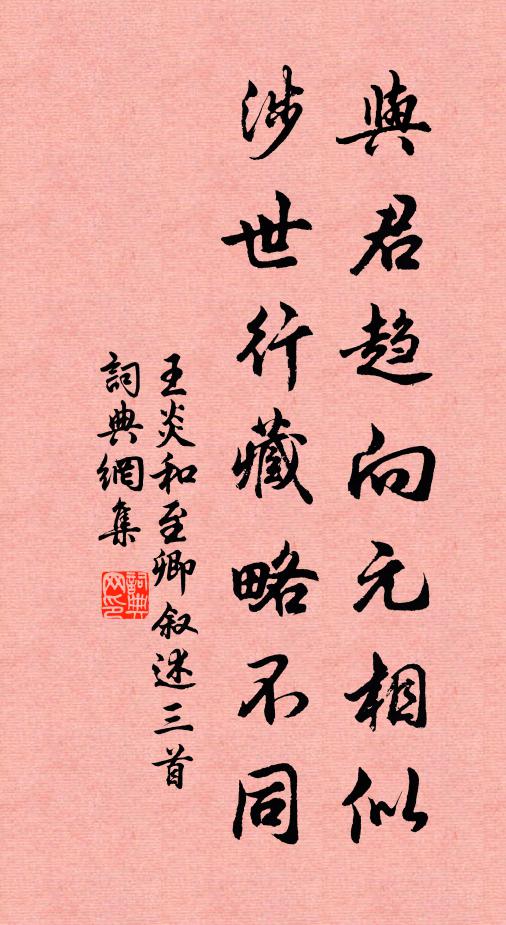 與君趋向元相似
涉世行藏略不同
王炎和至卿叙述三首
詞典網集
詞典网印